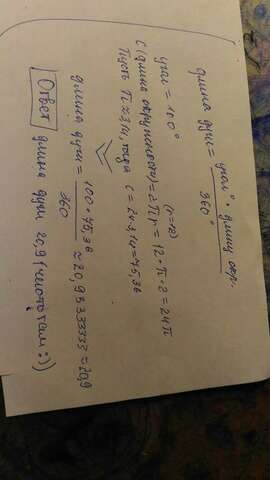 длина дуги = угол° · длину окр. / 360°
угол = 100° (r=12)
C (длина окружности) = 2πr = 12 · π · 2 = 24π
Пусть π≈3,14, тогда C = 24·3,14 = 75,36
длина дуги = 100 · 75,36 / 360 ≈ 20,9333333 = 20,9
Ответ длина дуги 20,9 (чего-то там :))